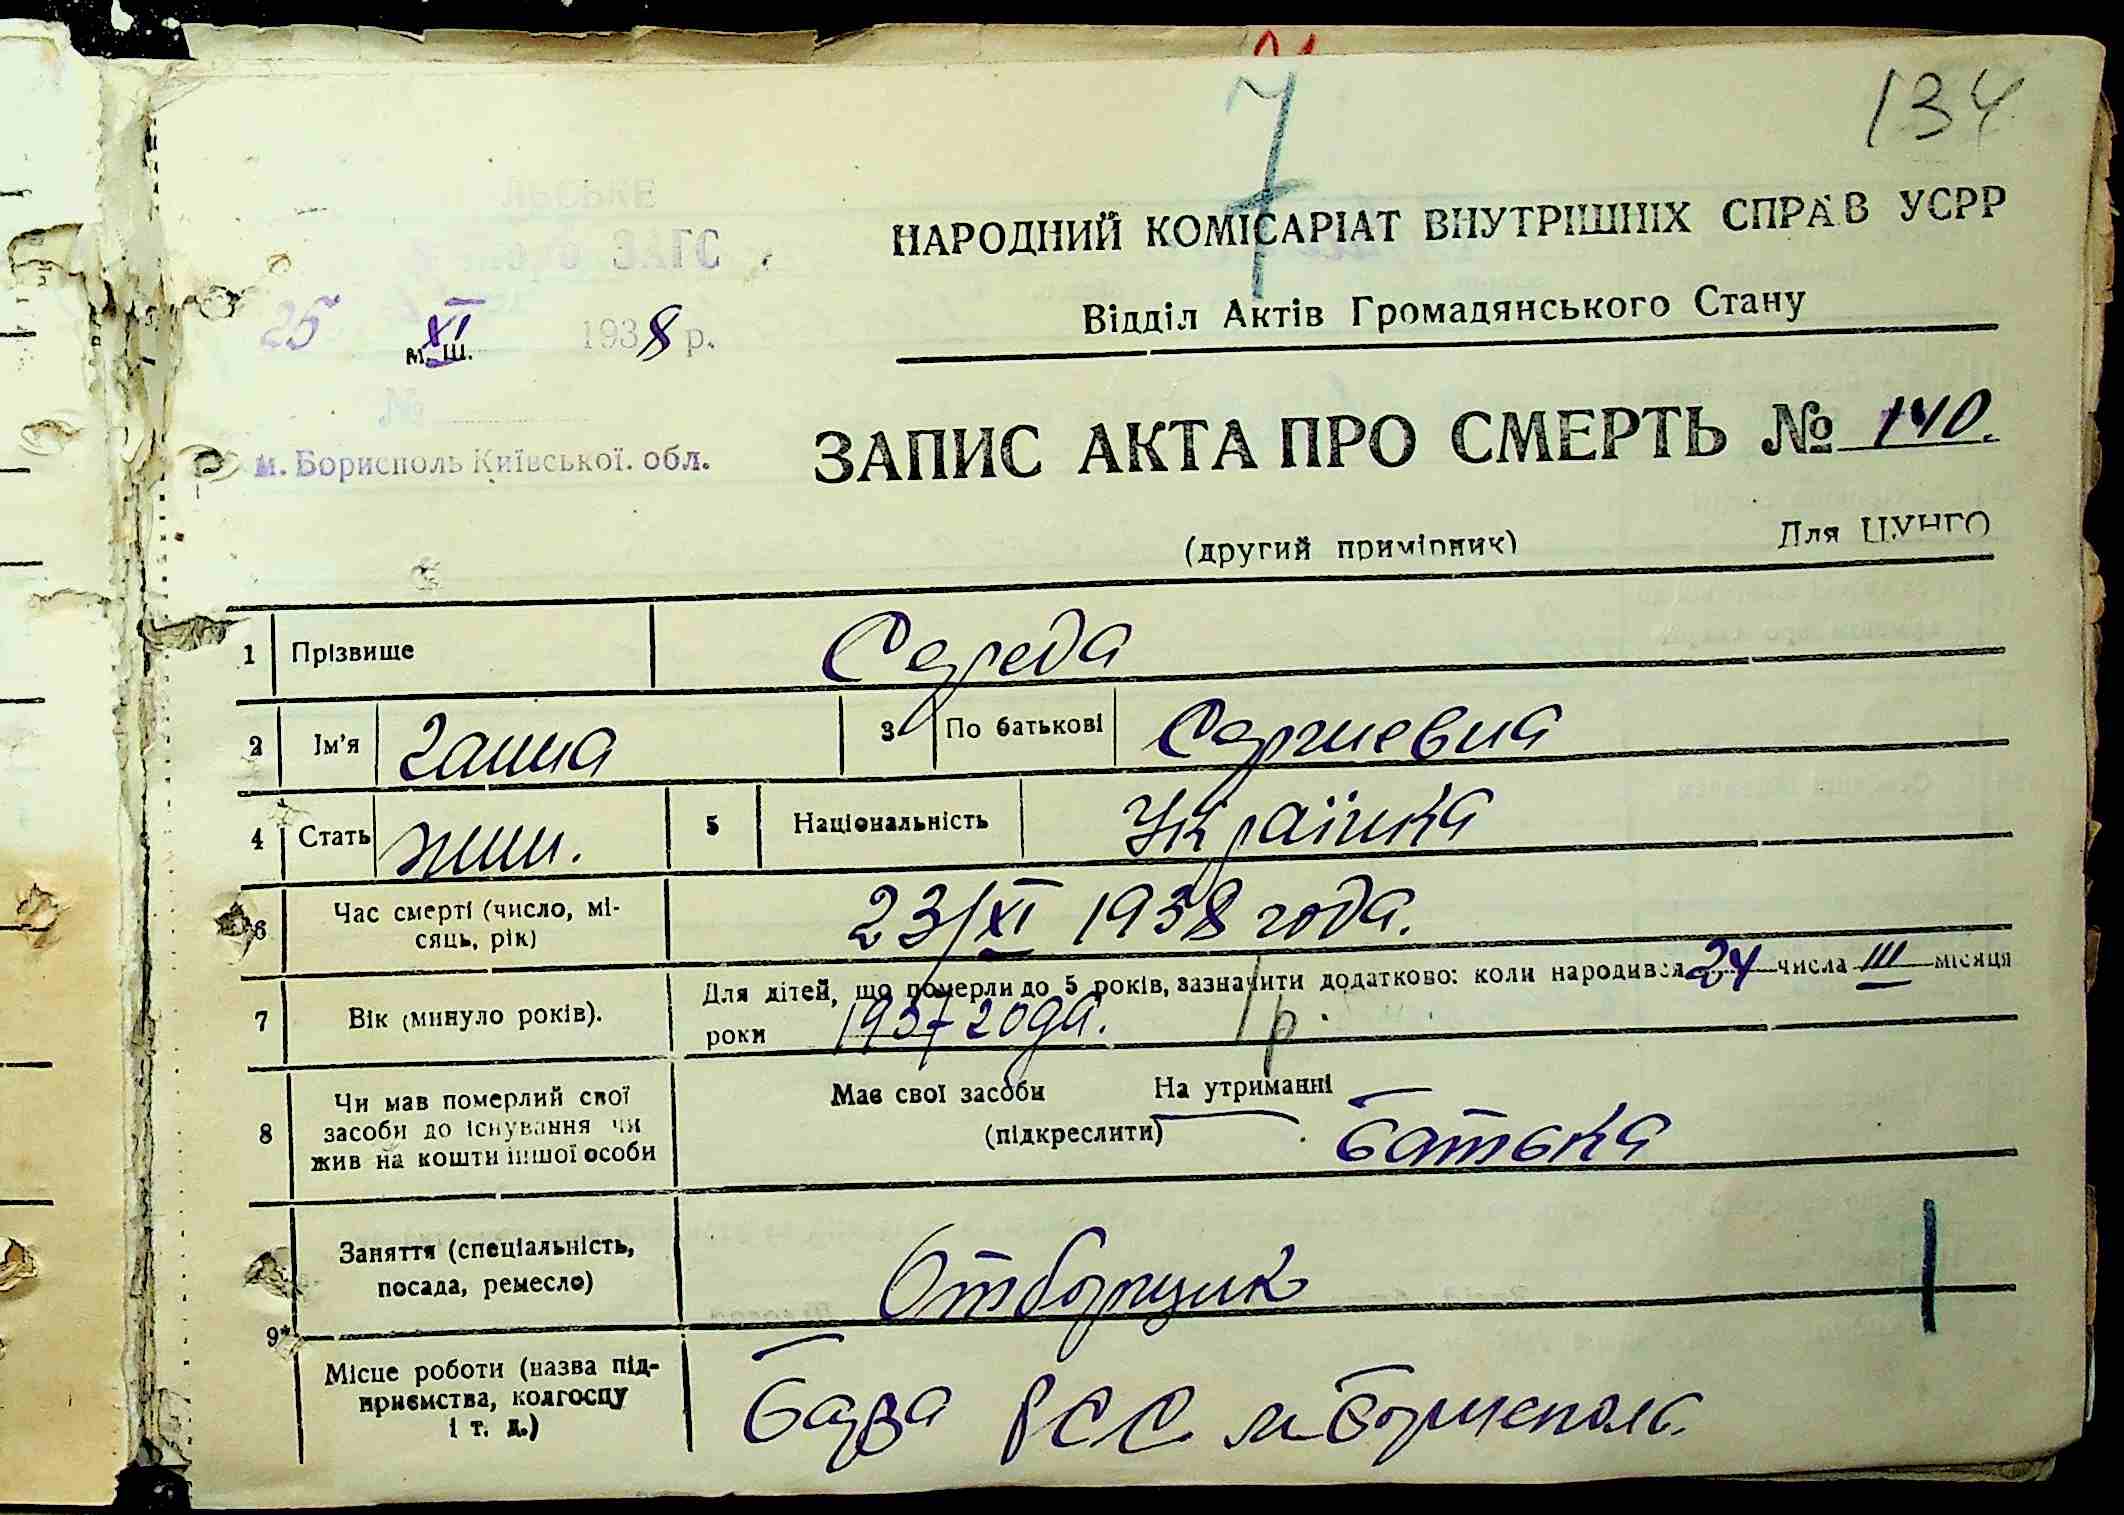 134
7
ЛЬСЬКЕ
ЗАГС
НАРОДНИЙ КОМІСАРІАТ ВНУТРІШНІХ СПРАВ УСРР
Відділ Актів Громадянського Стану
25 XI 1938 р.
м. ш.
№
м. Борисполь Київської. обл.
ЗАПИС АКТА ПРО СМЕРТЬ № 140.
(другий примірник) Для ЦУНГО
1 Прізвище Середа
2 Ім'я Ганна 3 По батькові Сергиевна
4 Стать жин. 5 Національність Українка
6 Час смерті (число, мі-
сяць, рік) 23/XI 1938 года.
7 Вік (минуло років). Для дітей, що померли до 5 років, зазначити додатково: коли народився 24 числа III місяця
роки 1937 года. 1 р.
8 Чи мав померлий свої
засоби до існування чи
жив на кошти іншої особи
Має свої засоби На утриманні
(підкреслити) батька
Заняття (спеціальність,
посада, ремесло) Отборщик
9*
Місце роботи (назва під-
приємства, колгоспу
і т. д.)
База РСС м Борисполь.